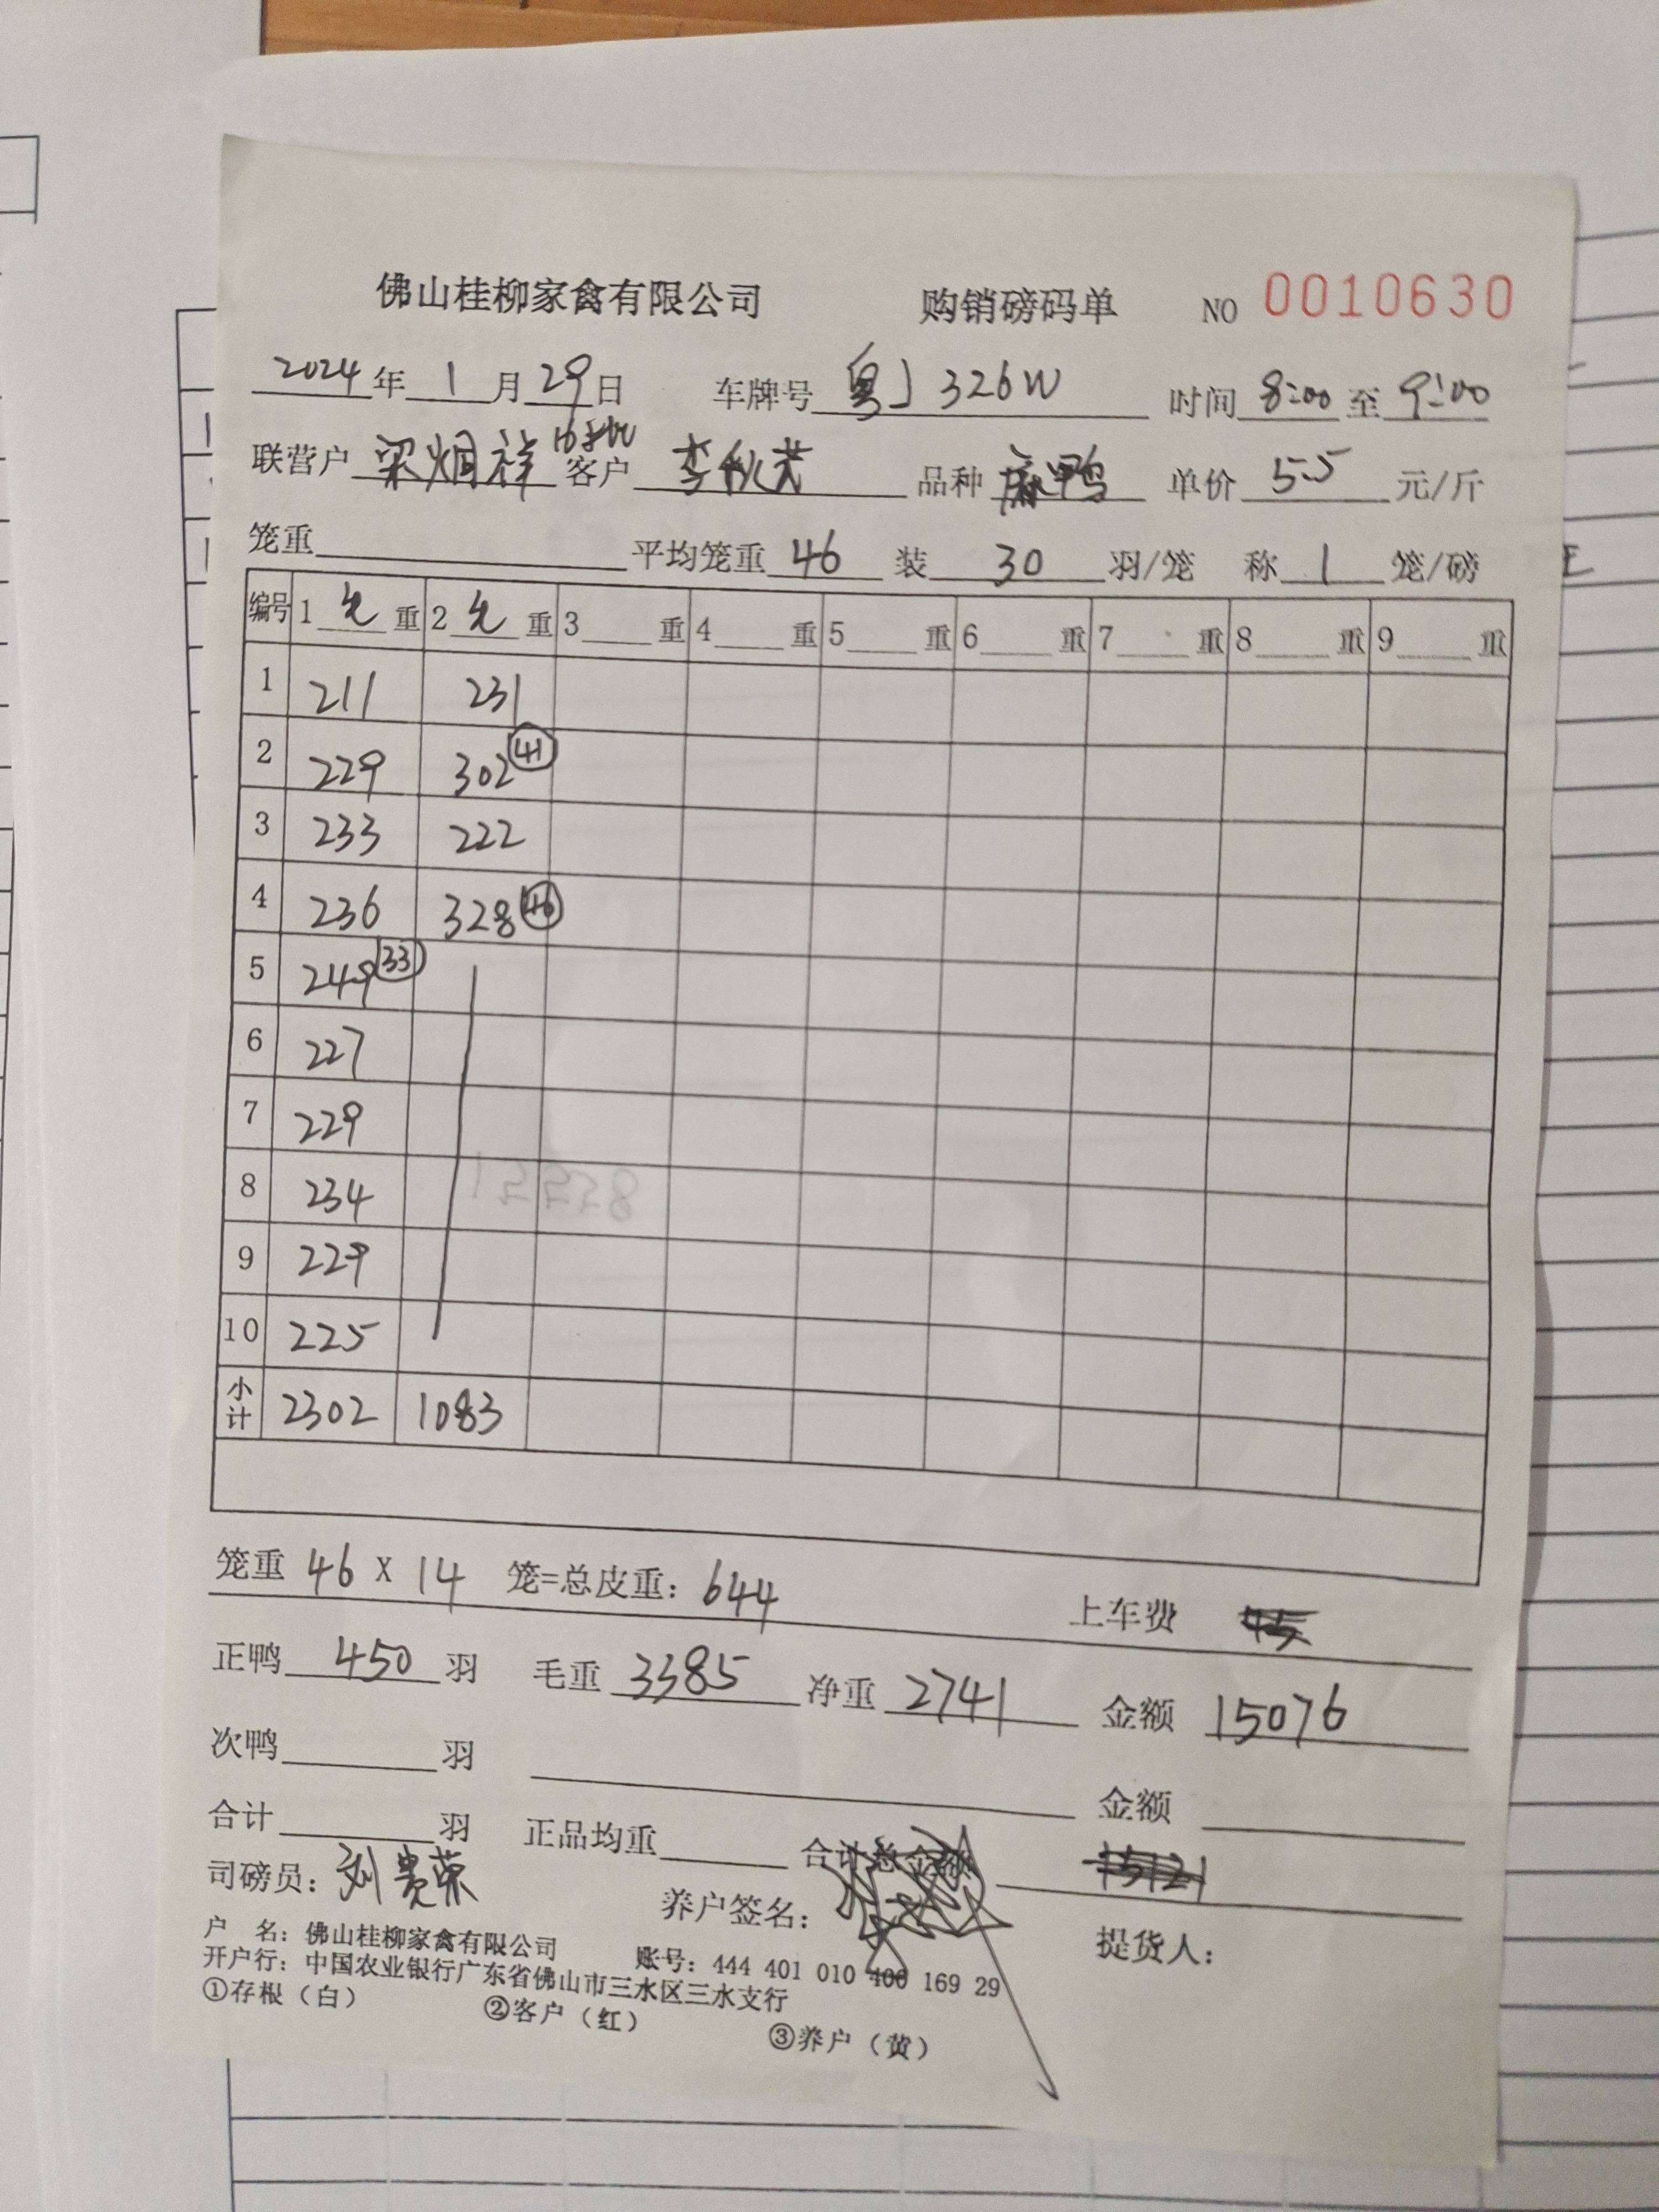 佛山桂柳家禽有限公司 购销磅码单 NO 0010630
2024年1月29日 车牌号 粤J 326W 时间 8:00 至 9:00
联营户 梁炯祥 客户 李秋芳 品种 麻鸭 单价 5.5 元/斤
笼重 平均笼重 46 装 30 羽/笼 称 1 笼/磅
编号 1 毛 重 2 毛 重 3 重 4 重 5 重 6 重 7 重 8 重 9 重
1 211 231
2 229 302 41
3 233 222
4 236 328 46
5 249 33
6 227
7 229
8 234
9 229
10 225
小计 2302 1083
笼重 46 X 14 笼=总皮重: 644 上车费 45
正鸭 450 羽 毛重 3385 净重 2741 金额 15076
次鸭 羽 金额
合计 羽 正品均重 合计总金额 15121
司磅员: 刘贵荣 养户签名: 提货人:
户 名: 佛山桂柳家禽有限公司 账号: 444 401 010 400 169 29
开户行: 中国农业银行广东省佛山市三水区三水支行
①存根（白） ②客户（红） ③养户（黄）